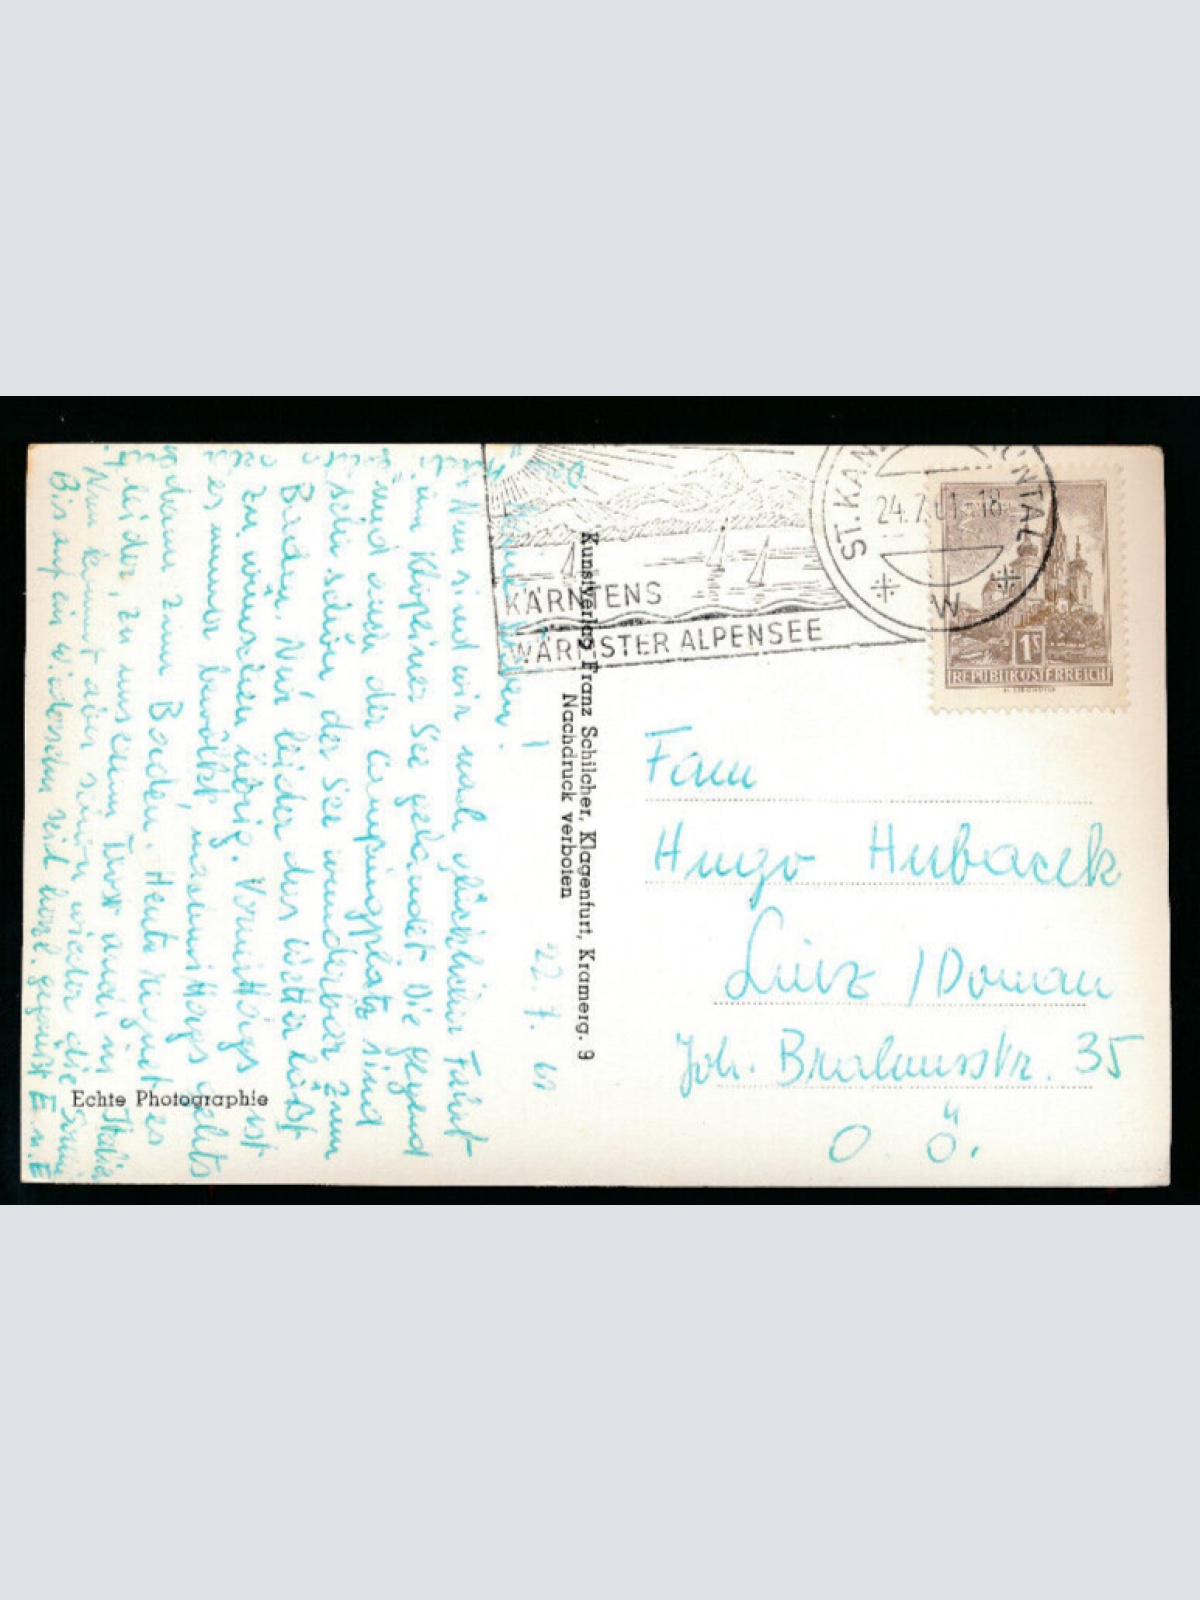 22. 7. 61
Nun sind wir nach glücklicher Fahrt
am Klopeiner See gelandet. Die Gegend
und auch der Campingplatz sind
sehr schön, der See wunderbar zum
Baden. Nur leider das Wetter läßt
zu wünschen übrig. Vormittags ist
es immer bewölkt, nachmittags gehts
dann zum Baden. Heute regnet es
leider, zu unserem Trost auch in Italien
Nun kommt aber schon wieder die Sonne
Bis auf ein Wiedersehen seid herzl. gegrüßt E. u. E
Echte Photographie
Kunstverlag Franz Schilcher, Klagenfurt, Kramerg. 9
Nachdruck verboten
KÄRNTENS
WÄRMSTER ALPENSEE
24.7.61-18
W
1S
REPUBLIK ÖSTERREICH
Fam
Hugo Hubacek
Linz / Donau
Joh. Brahmsstr. 35
O. Ö.